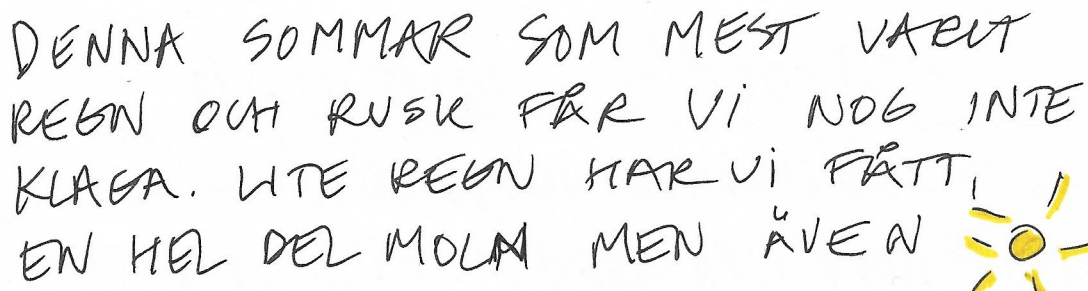 DENNA SOMMAR SOM MEST VARIT
REGN OCH RUSK FÅR VI NOG INTE
KLAGA. LITE REGN HAR VI FÅTT,
EN HEL DEL MOLN MEN ÄVEN